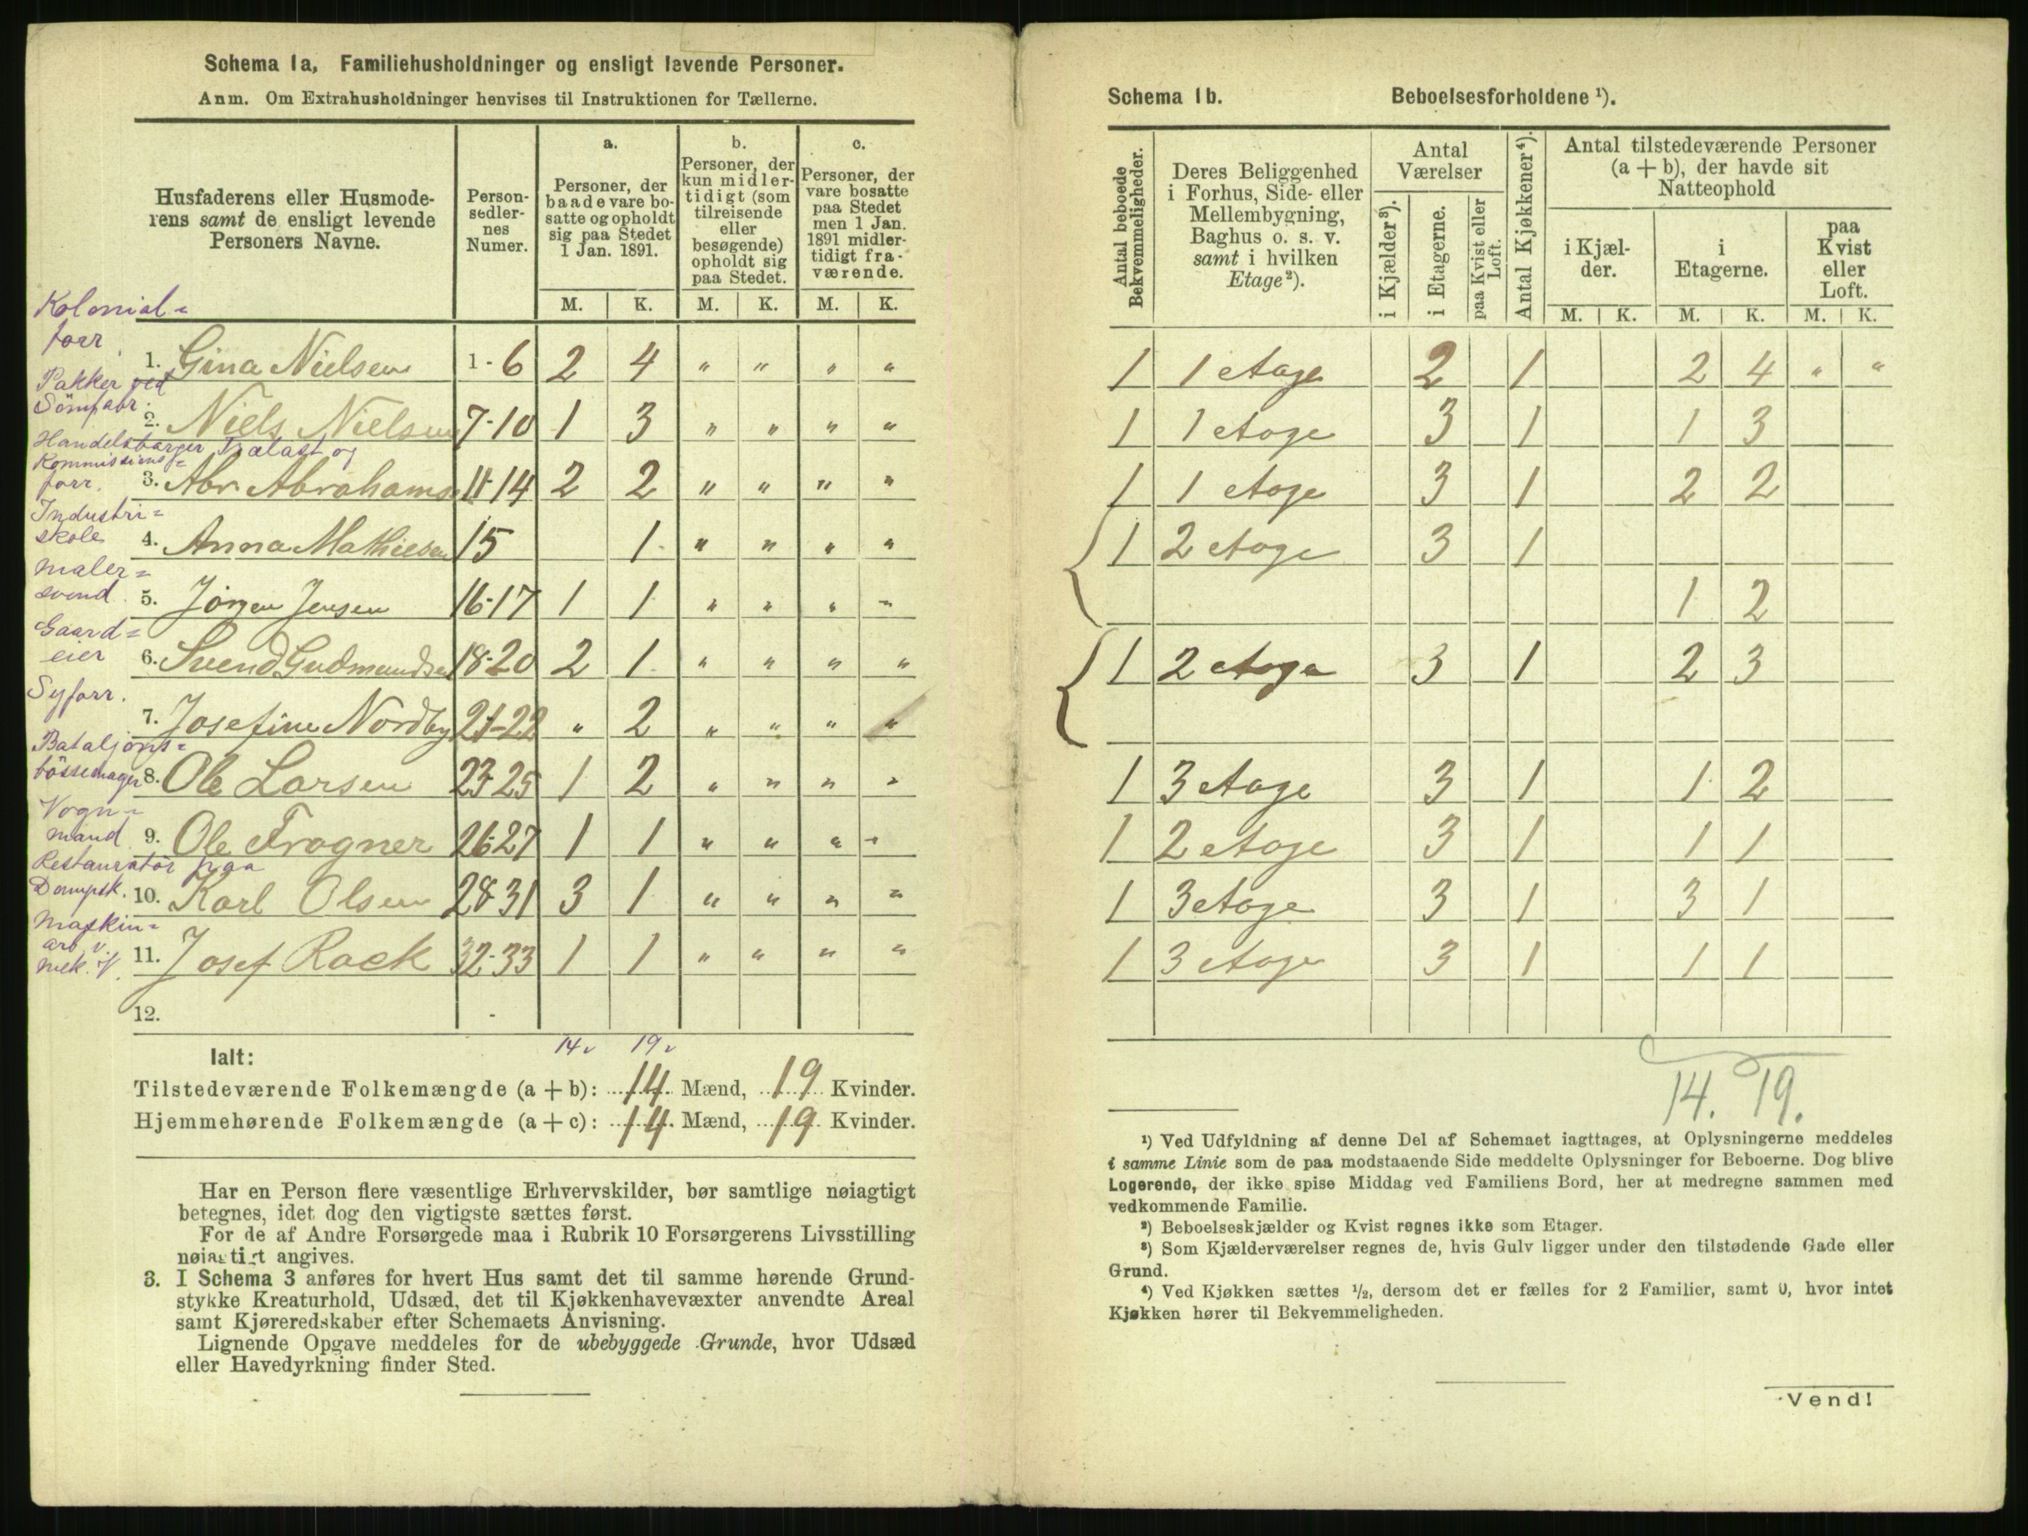 Schema 1a, Familiehusholdninger og ensligt levende Personer.
Anm. Om Extrahusholdninger henvises til Instruktionen for Tællerne.
Husfaderens eller Husmode-
rens samt de ensligt levende
Personers Navne.
Person-
sedler-
nes
Numer.
a.
Personer, der
baade vare bo-
satte og opholdt
sig paa Stedet
1 Jan. 1891.
b.
Personer, der
kun midler-
tidigt (som
tilreisende
eller
besøgende)
opholdt sig
paa Stedet.
c.
Personer, der
vare bosatte
paa Stedet
men 1 Jan.
1891 midler-
tidigt fra-
værende.
M. K. M. K. M. K.
Kolonial=
forr.
1. Gina Nielsen 1-6 2 4 " " " "
Pakker ved
Sömfabr.
2. Niels Nielsen 7-10 1 3 " " " "
Handelsborger Trælast og
Kommissions=
forr.
3. Abr. Abrahams 11-14 2 2 " " " "
Industri=
skole
4. Anna Mathiesen 15 1 " " " "
Maler=
svend
5. Jörgen Jensen 16-17 1 1 " " " "
Gaard=
eier
6. Svend Gudmundsen 18-20 2 1 " " " "
Syforr.
7. Josefine Nordby 21-22 " 2 " " " "
Bataljons=
bössemager
8. Ole Larsen 23-25 1 2 " " " "
Vogn=
mand
9. Ole Frogner 26-27 1 1 " " " "
Restauratör paa
Dampsk.
10. Karl Olsen 28-31 3 1 " " " "
Maskin=
arb v.
mek.
11. Josef Rack 32-33 1 1 " " " "
12.
14 19
Ialt:
Tilstedeværende Folkemængde (a + b): 14 Mænd, 19 Kvinder.
Hjemmehørende Folkemængde (a + c): 14 Mænd, 19 Kvinder.
Har en Person flere væsentlige Erhvervskilder, bør samtlige nøiagtigt
betegnes, idet dog den vigtigste sættes først.
For de af Andre Forsørgede maa i Rubrik 10 Forsørgerens Livsstilling
nøiagtigt angives.
3. I Schema 3 anføres for hvert Hus samt det til samme hørende Grund-
stykke Kreaturhold, Udsæd, det til Kjøkkenhavevæxter anvendte Areal
samt Kjøreredskaber efter Schemaets Anvisning.
Lignende Opgave meddeles for de ubebyggede Grunde, hvor Udsæd
eller Havedyrkning finder Sted.
Schema 1b. Beboelsesforholdene ¹).
Antal beboede
Bekvemmeligheder.
Deres Beliggenhed
i Forhus, Side- eller
Mellembygning,
Baghus o. s. v.
samt i hvilken
Etage²).
Antal
Værelser
i Kjælder³).
i Etagerne.
paa Kvist eller
Loft.
Antal Kjøkkener⁴).
Antal tilstedeværende Personer
(a + b), der havde sit
Natteophold
i Kjæl-
der.
i
Etagerne.
paa
Kvist
eller
Loft.
M. K. M. K. M. K.
1 1 etage 2 1 2 4 " "
1 1 etage 3 1 1 3
1 1 etage 3 1 2 2
1 2 etage 3 1
1 2
1 2 etage 3 1 2 3
1 3 etage 3 1 1 2
1 2 etage 3 1 1 1
1 3 etage 3 1 3 1
1 3 etage 3 1 1 1
14. 19.
¹) Ved Udfyldning af denne Del af Schemaet iagttages, at Oplysningerne meddeles
i samme Linie som de paa modstaaende Side meddelte Oplysninger for Beboerne. Dog blive
Logerende, der ikke spise Middag ved Familiens Bord, her at medregne sammen med
vedkommende Familie.
²) Beboelseskjælder og Kvist regnes ikke som Etager.
³) Som Kjælderværelser regnes de, hvis Gulv ligger under den tilstødende Gade eller
Grund.
⁴) Ved Kjøkken sættes ½, dersom det er fælles for 2 Familier, samt 0, hvor intet
Kjøkken hører til Bekvemmeligheden.
Vend!